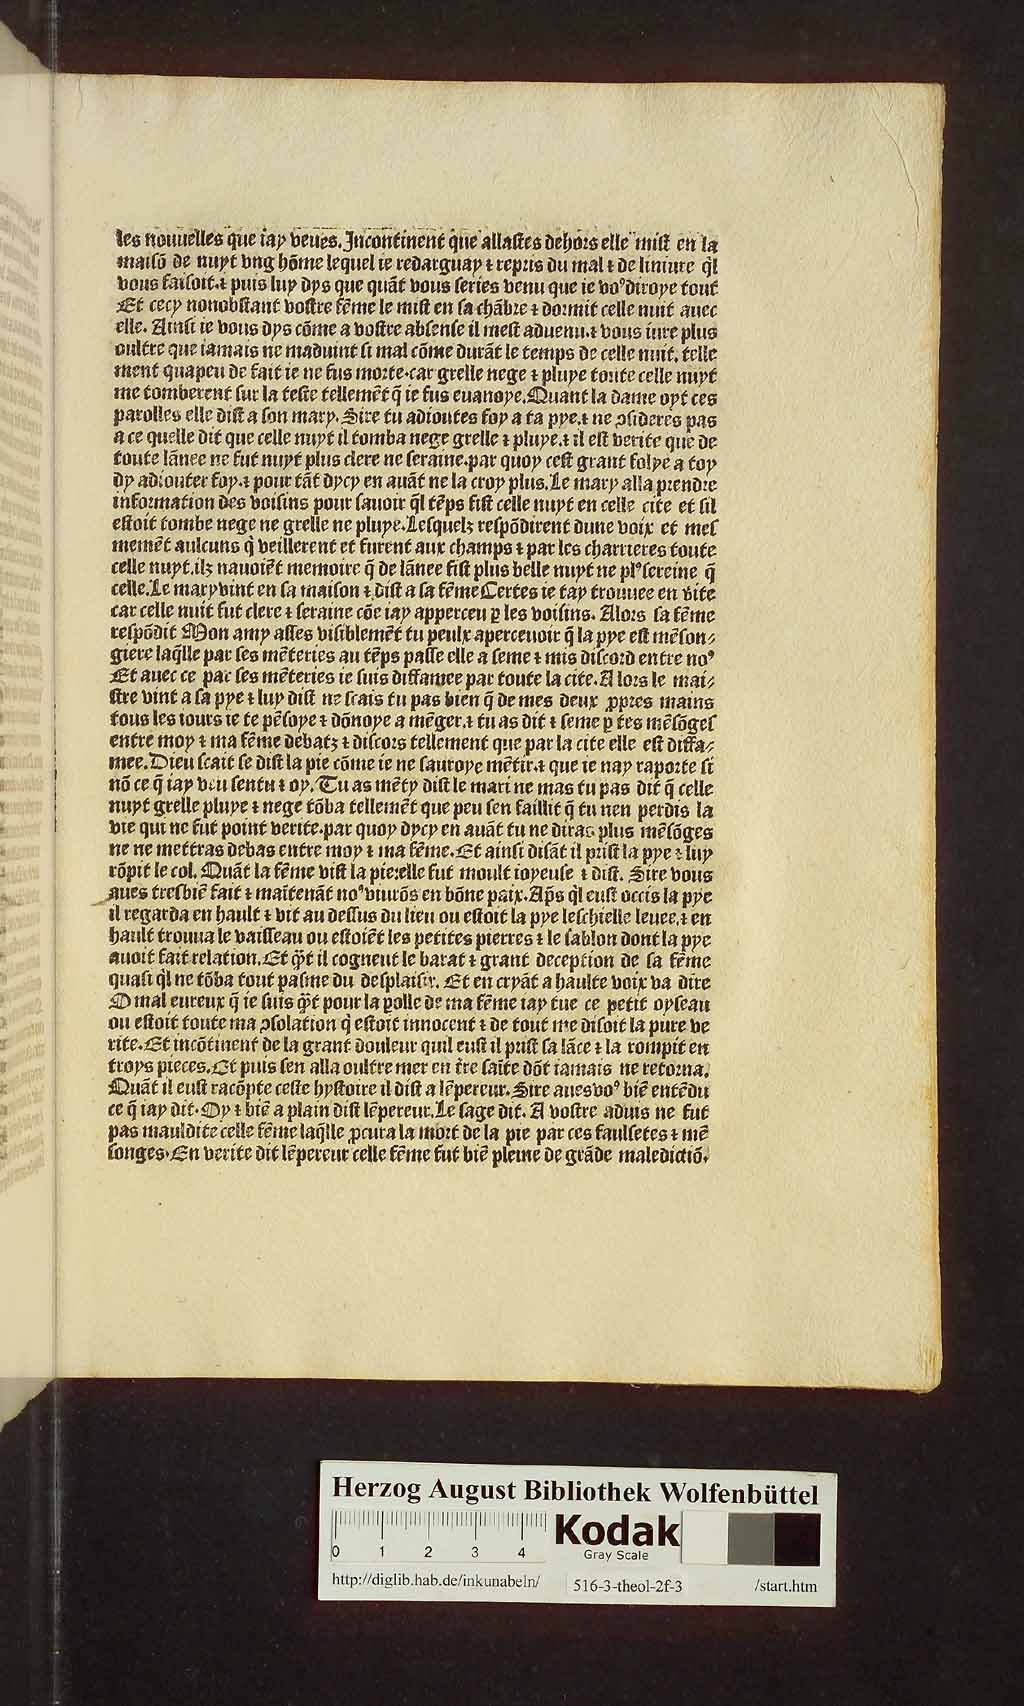 les nouuelles que iay veues. Incontinent que allastes dehors elle mist en la
maisō de nuyt vng hōme lequel ie redarguay ⁊ repris du mal ⁊ de liniure q̄l
vous faisoit.⁊ puis luy dys que quāt vous series venu que ie voꝰdiroye tout
Et cecy nonobstant vostre fēme le mist en sa chābre ⁊ dormit celle nuit auec
elle. Ainsi ie vous dys cōme a vostre absense il mest aduenu.⁊ vous iure plus
oultre que iamais ne maduint si mal cōme durāt le temps de celle nuit. telle
ment quapeu de fait ie ne fus morte.car grelle nege ⁊ pluye toute celle nuyt
me tomberent sur la teste tellemēt q̄ ie fus euanoye. Quant la dame oyt ces
parolles elle dist a son mary. Sire tu adioutes foy a ta pye.⁊ ne ꝯsideres pas
a ce quelle dit que celle nuyt il tomba nege grelle ⁊ pluye.⁊ il est verite que de
toute lānee ne fut nuyt plus clere ne seraine.par quoy cest grant folye a toy
dy adiouter foy.⁊ pour tāt dycy en auāt ne la croy plus. Le mary alla prendre
information des voisins pour sauoir q̄l tēps fist celle nuyt en celle cite et sil
estoit tombe nege ne grelle ne pluye. Lesquelz respōdirent dune voix et mes
memēt aulcuns q̇ veillerent et furent aux champs ⁊ par les charrieres toute
celle nuyt.ilz nauoiēt memoire q̄ de lānee fist plus belle nuyt ne plꝰsereine q̄
celle. Le mary vint en sa maison ⁊ dist a sa fēme Certes ie tay trouuee en vite
car celle nuit fut clere ⁊ seraine cōe iay apperceu ꝑ les voisins. Alors sa fēme
respōdit Mon amy asses visiblemēt tu peulx aperceuoir q̄ la pye est mēson/
giere laq̄lle par ses mēteries au tēps passe elle a seme ⁊ mis discord entre noꝰ
Et auec ce par ses mēteries ie suis diffamee par toute la cite. Alors le mai/
stre vint a sa pye ⁊ luy dist ne scais tu pas bien q̄ de mes deux ꝓpres mains
tous les iours ie te pēsoye ⁊ dōnoye a mēger.⁊ tu as dit ⁊ seme ꝑ tes mēsōges
entre moy ⁊ ma fēme debatz ⁊ discors tellement que par la cite elle est diffa/
mee. Dieu scait se dist la pie cōme ie ne sauroye mētir.⁊ que ie nay raporte si
nō ce q̄ iay veu sentu ⁊ oy. Tu as mēty dist le mari ne mas tu pas dit q̄ celle
nuyt grelle pluye ⁊ nege tōba tellemēt que peu sen faillit q̄ tu nen perdis la
vie qui ne fut point verite.par quoy dycy en auāt tu ne diras plus mēsōges
ne ne mettras debas entre moy ⁊ ma fēme. Et ainsi disāt il prist la pye ⁊ luy
rōpit le col. Quāt la fēme vist la pie:elle fut moult ioyeuse ⁊ dist. Sire vous
aues tresbiē fait ⁊ maītenāt noꝰ viurōs en bōne paix. Ap̄s q̄l eust occis la pye
il regarda en hault ⁊ vit au dessus du lieu ou estoit la pye leschielle leuee.⁊ en
hault trouua le vaisseau ou estoiēt les petites pierres ⁊ le sablon dont la pye
auoit fait relation. Et q̄t il cogneut le barat ⁊ grant deception de sa fēme
quasi q̄l ne tōba tout pasme du desplaisir. Et en cryāt a haulte voix va dire
O mal eureux q̄ ie suis q̄t pour la ꝑolle de ma fēme iay tue ce petit oyseau
ou estoit toute ma ꝯsolation q̇ estoit innocent ⁊ de tout me disoit la pure ve
rite. Et incōtinent de la grant douleur quil eust il prist sa lāce ⁊ la rompit en
troys pieces. Et puis sen alla oultre mer en tr̄e saīte dōt iamais ne retorna.
Quāt il eust racōpte ceste hystoire il dist a lēpereur. Sire auesvoꝰ biē entēdu
ce q̄ iay dit. Oy ⁊ biē a plain dist lēpereur. Le sage dit. A vostre aduis ne fut
pas mauldite celle fēme laq̄lle ꝓcura la mort de la pie par ces faulsetes ⁊ mē
songes. En verite dit lēpereur celle fēme fut biē pleine de grāde maledictiō.
Herzog August Bibliothek Wolfenbüttel
0 1 2 3 4
Kodak
Gray Scale
http://diglib.hab.de/inkunabeln/ 516-3-theol-2f-3 /start.htm